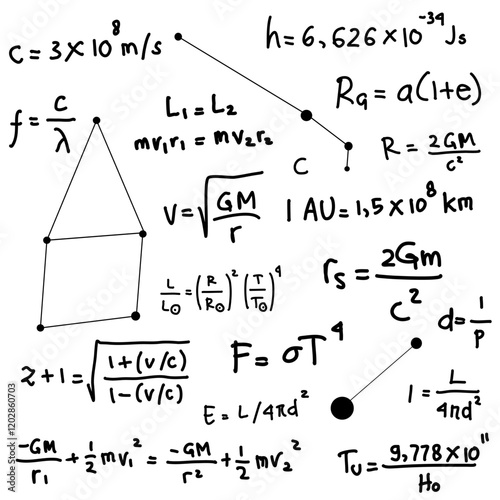 c = 3 × 10⁸ m/s
h = 6,626 × 10⁻³⁴ Js
f = c/λ
L₁ = L₂
mv₁r₁ = mv₂r₂
Rq = a(1+e)
R = 2GM/c²
C
V = √(GM/r)
1 AU = 1,5 × 10⁸ km
L/L☉ = (R/R☉)² (T/T☉)⁴
rs = 2Gm/c²
d = 1/p
z + 1 = √((1+(v/c))/(1-(v/c)))
F = σT⁴
E = L/4πd²
l = L/4πd²
-GM/r₁ + 1/2 mv₁² = -GM/r² + 1/2 mv₂²
Tᴜ = 9,778 × 10¹¹/H₀
Adobe Stock | #1202860703